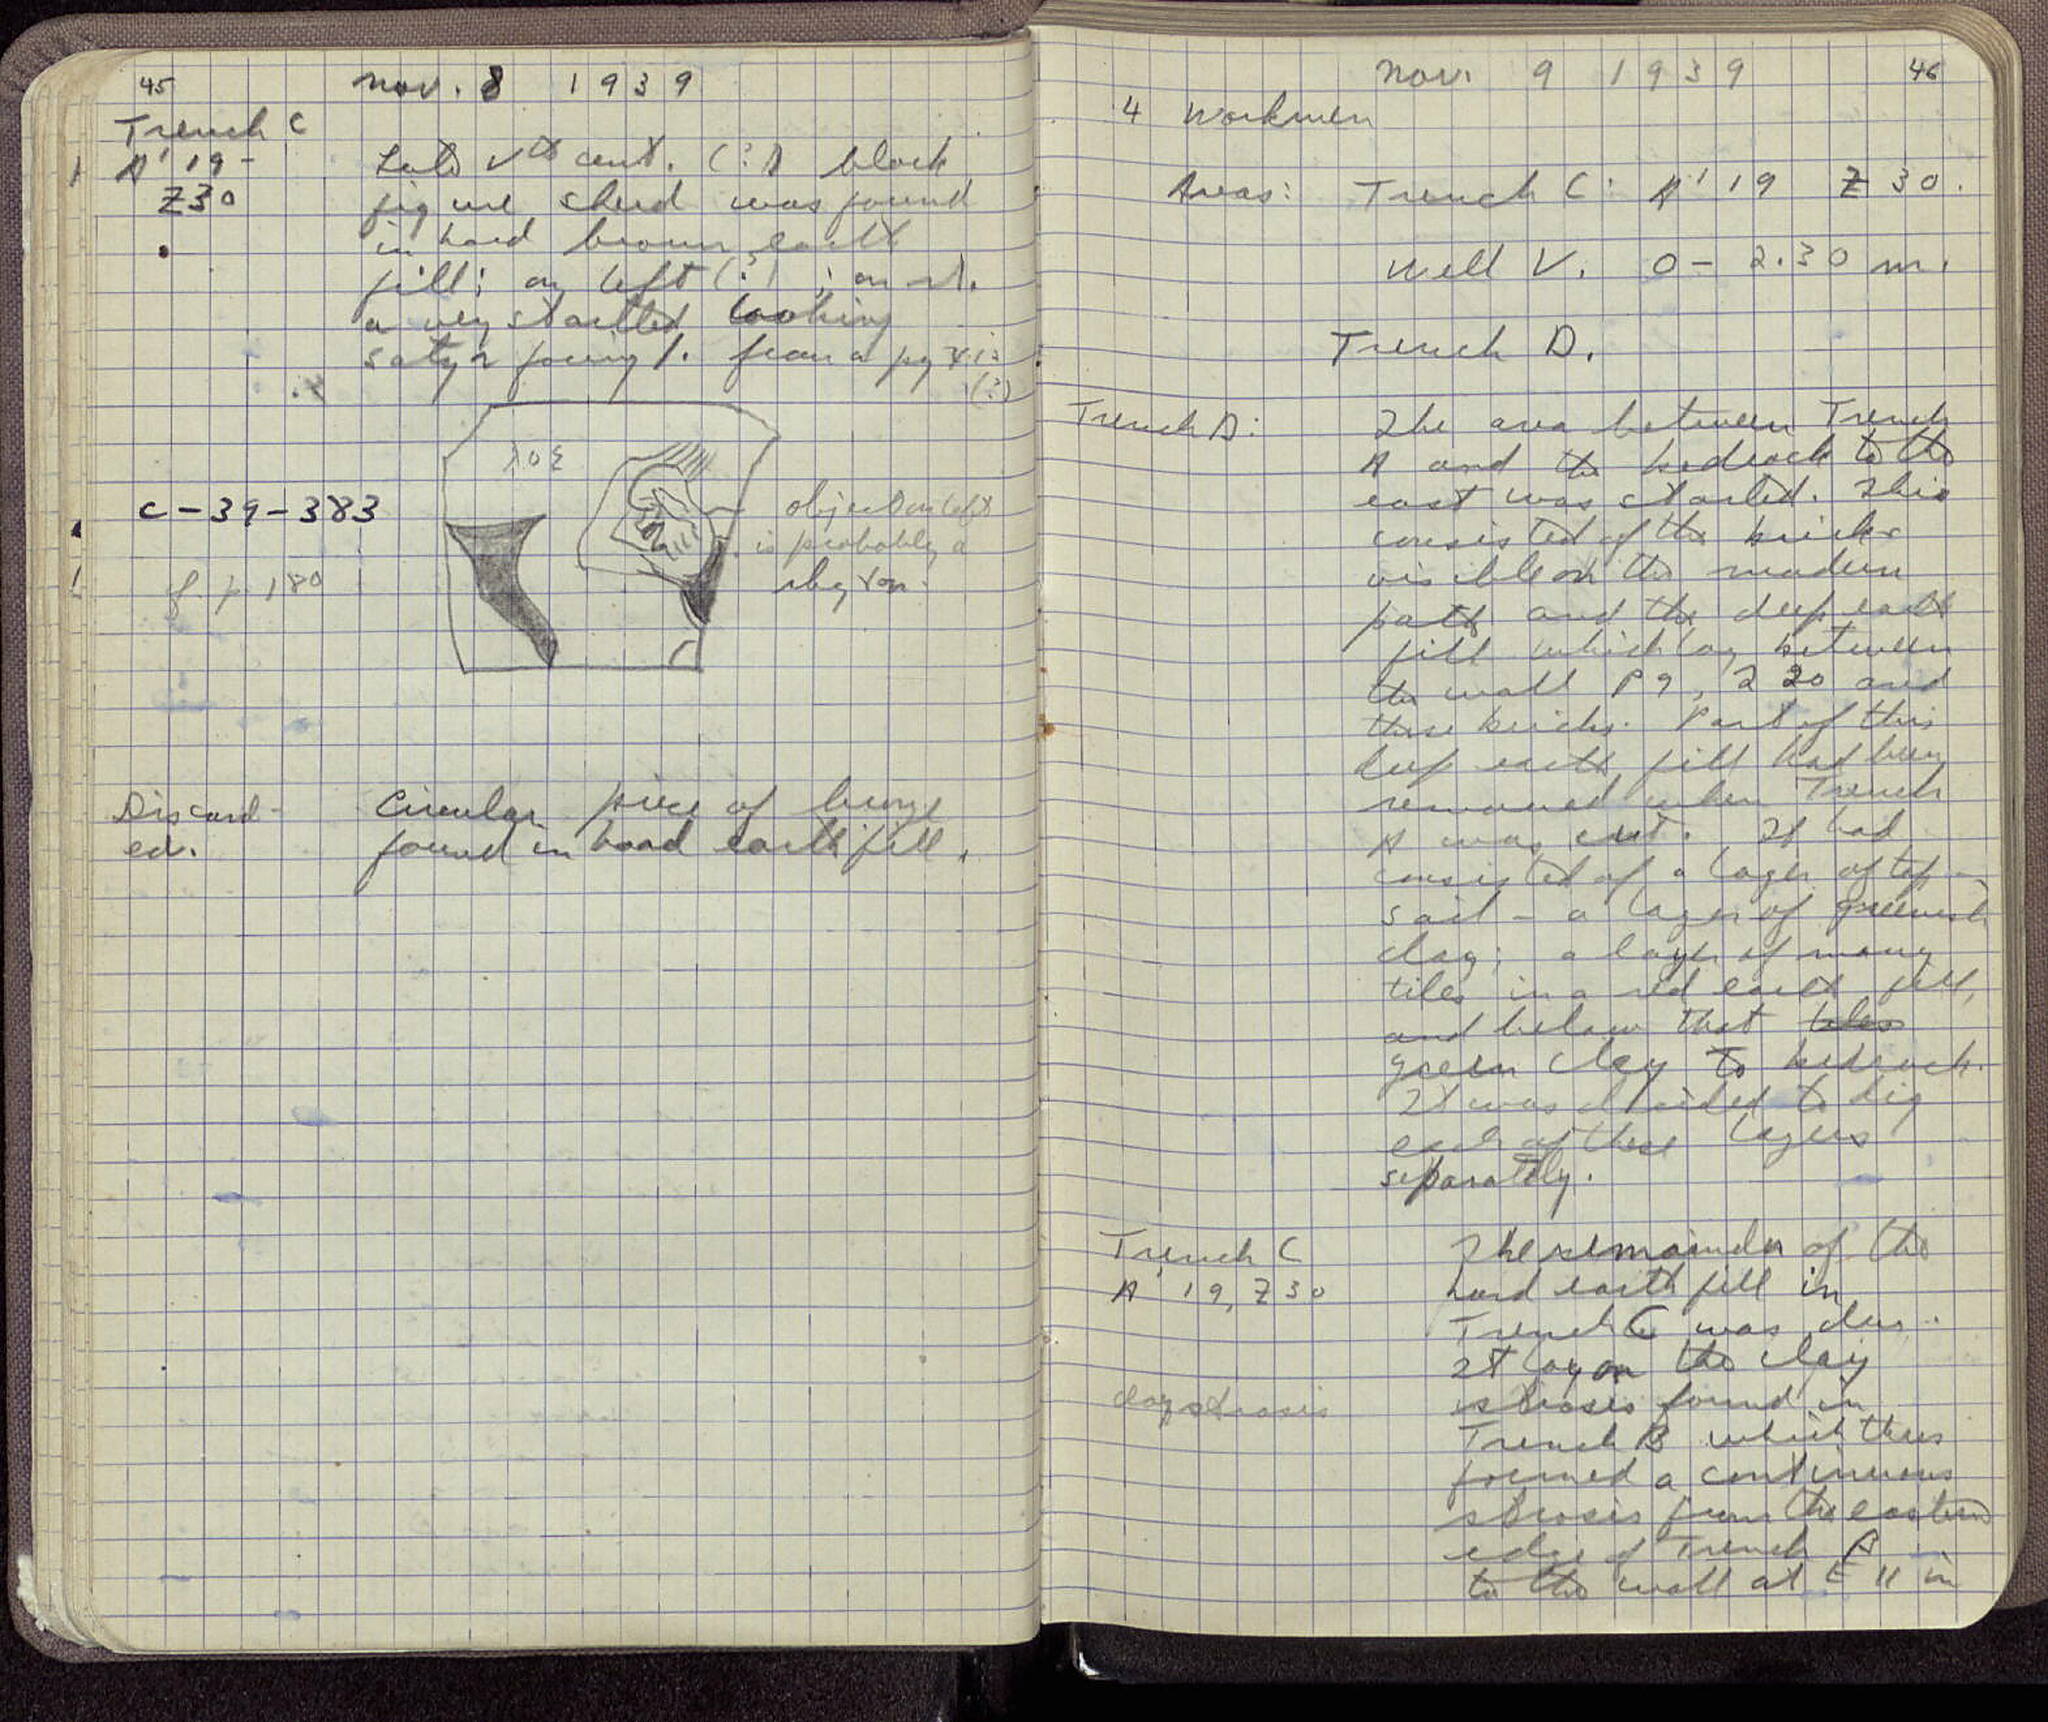 45 Nov. 8 1939
Trench C
A' 19 -
Z30
Late Vth cent. (?) black
figure sherd was found
in hard brown earth
fill; on left (?) ; on rt.
a very startled looking
satyr facing l. from a pyxis
(?)
C-39-383
object on left
is probably a
rhyton.
p 180
Discard-
ed.
Circular piece of bronze
found in hard earth fill.
Nov. 9 1939 46
4 Workmen
Areas: Trench C: A' 19 Z 30.
Well V. 0 - 2.30 m.
Trench D.
Trench D: The area between Trench
A and the bedrock to the
east was started. This
consisted of the bricks
visible on the modern
path and the deep earth
fill which lay between
the wall P9, Z 20 and
these bricks. Part of this
deep earth fill had been
removed when Trench
A was cut. It had
consisted of a layer of top-
soil - a layer of greenish
clay; a layer of many
tiles in a red earth fill,
and below that
green clay to bedrock.
It was decided to dig
each of these layers
separately.
Trench C
A' 19, Z30
The remainder of the
hard earth fill in
Trench C was dug.
It lay on the clay
clay strosis
strosis found in
Trench B which thus
formed a continuous
strosis from the eastern
edge of Trench B
to the wall at E 11 in